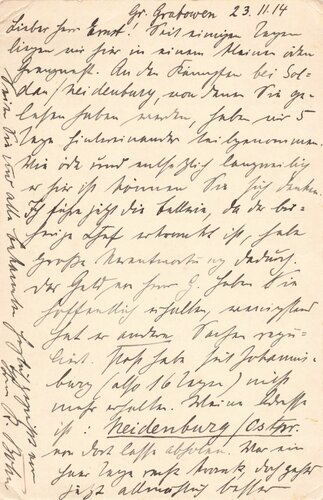 Gr. Grabowen 23.11.14
Lieber Herr Ernst! Seit einigen Tagen
liegen wir hier in einem kleinen öden
Grenznest. An den Kämpfen bei Sol-
dau/Neidenburg, von denen Sie ge-
lesen haben werden, haben wir 5
Tage hintereinander teilgenommen.
Wie öde und entsetzlich langweilig
es hier ist können Sie sich denken.
Ich führe jetzt die Batterie, da der bis-
herige Chef erkrankt ist, habe
große Verantwortung dadurch.
Das Geld von Herr G. haben Sie
hoffentlich erhalten, wenigstens
hat er andere Sachen regu-
liert. Post habe seit Johannis-
burg (also 16 Tagen) nicht
mehr erhalten. Meine Adresse
ist: Neidenburg/Ostpr.
von dort lasse abholen. War ein
paar Tage recht krank, doch geht
jetzt allmählich besser
Seien Sie und alle Bekannte herzlich gegrüßt von
Ihrem